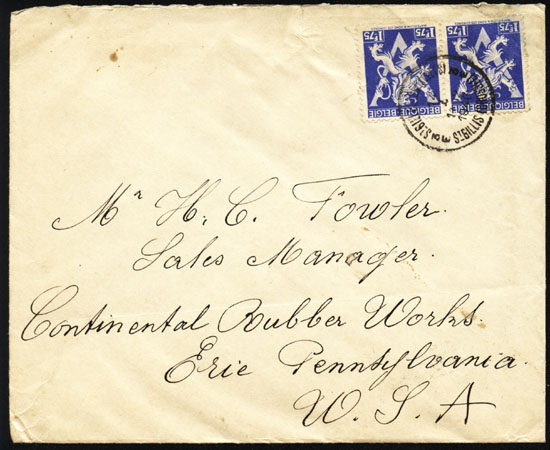 1F75 1F75
BELGIQUE-BELGIE BELGIQUE-BELGIE
ST GILLIS
Mr H. C. Fowler.
Sales Manager.
Continental Rubber Works.
Erie Pennsylvania.
U. S. A